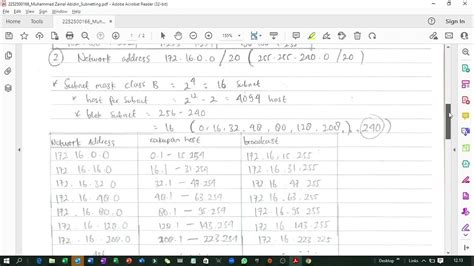 2252500166_Muhammad Zainal Abidin_Subnetting.pdf - Adobe Acrobat Reader (32-bit)
File Edit View Sign Window Help
Home Tools
Sign In
1 / 2
② Network address 172.16.0.0 /20 (255.255.240.0 /20)
* Subnet mask class B = 2⁴ = 16 Subnet
* host per Subnet = 2¹² - 2 = 4094 host
* blok Subnet = 256 - 240
= 16 (0.16.32, 48, 80, 128, 208, ), 240)
Network Address broadcast
172 16.0.0 0.1 - 15.254 172.16.15 255
172.16.16.0 16.1 - 31.254 172.16.31.255
172.16 32.0 32.1 - 47.254 172.16 47 255
172.16.48.0 48.1 - 63.254 172.16.63.255
172.16.80.0 80.1 - 95.254 172.16.95.255
172.16.128.0 128.1 - 143.254 172.16 143.255
172.16.208.0 208.1 - 223.254 172.16 223.255
Desktop
12.13